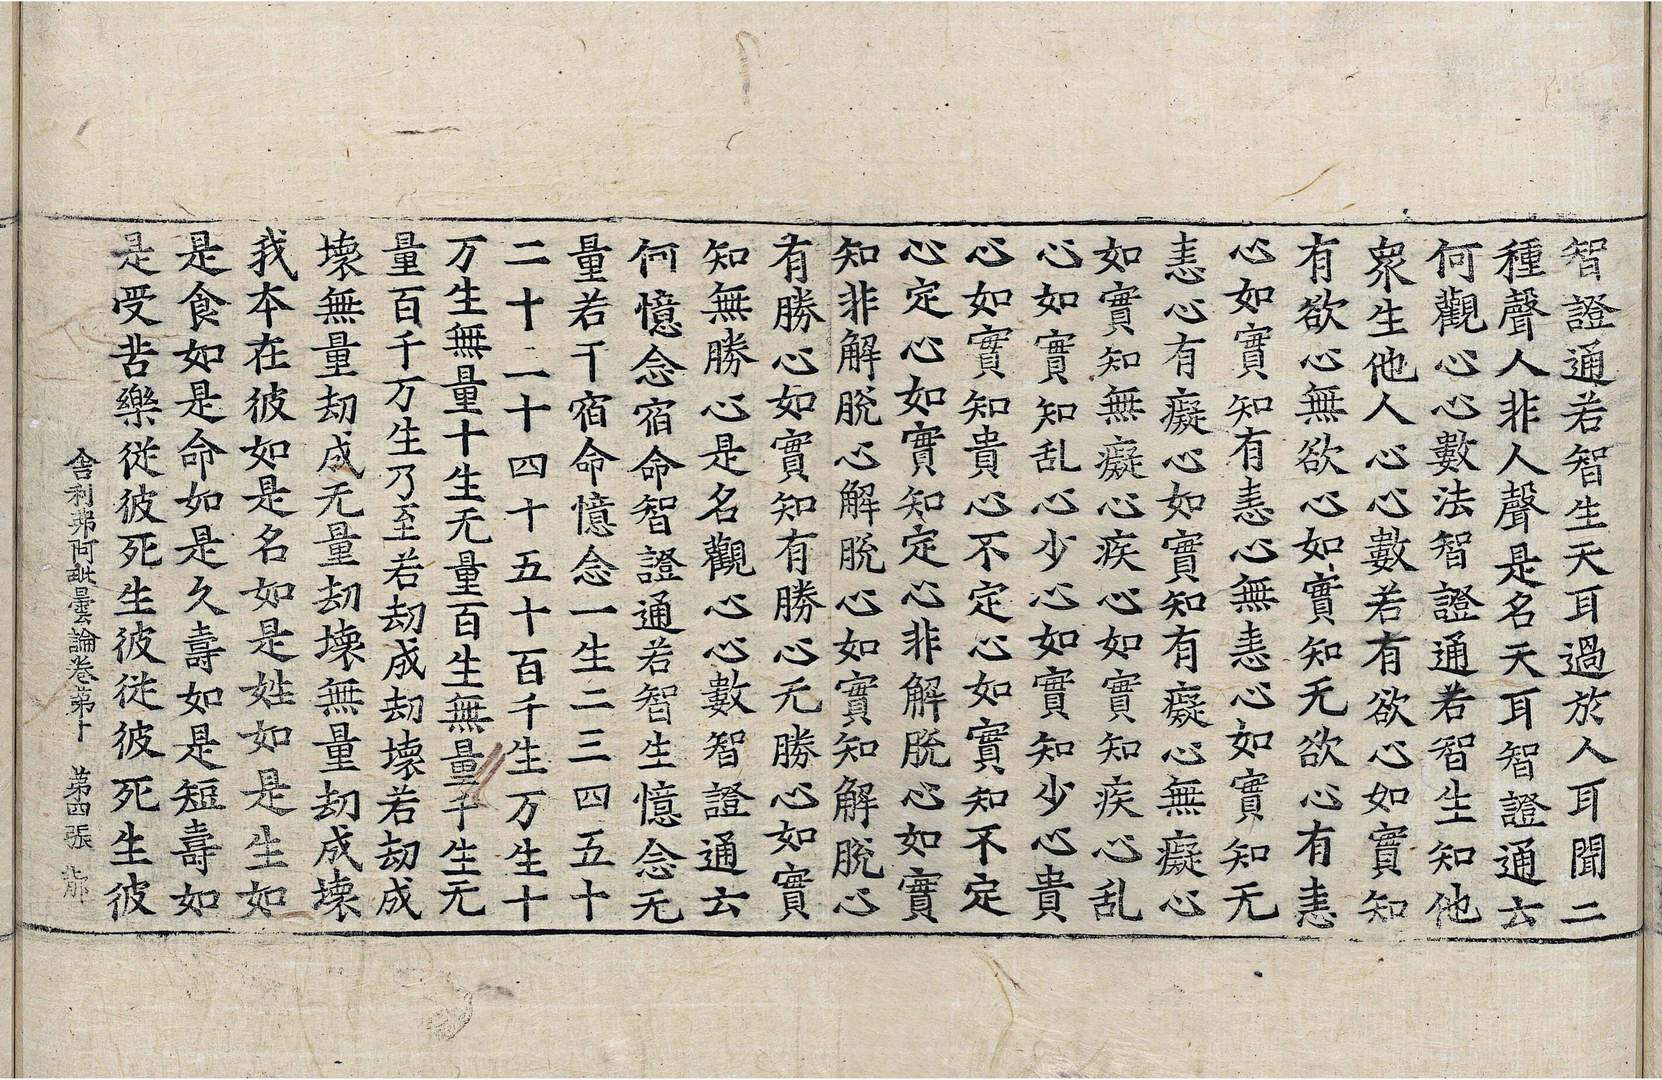 智證通若智生天耳過於人耳聞二
種聲人非人聲是名天耳智證通云
何觀心心數法智證通若智生知他
衆生他人心心數若有欲心如實知
有欲心無欲心如實知无欲心有恚
心如實知有恚心無恚心如實知无
恚心有癡心如實知有癡心無癡心
如實知無癡心疾心如實知疾心乱
心如實知乱心少心如實知少心貴
心如實知貴心不定心如實知不定
心定心如實知定心非解脫心如實
知非解脫心解脫心如實知解脫心
有勝心如實知有勝心无勝心如實
知無勝心是名觀心心數智證通云
何憶念宿命智證通若智生憶念无
量若干宿命憶念一生二三四五十
二十二十四十五十百千生万生十
万生無量十生无量百生無量千生无
量百千万生乃至若劫成劫壞若劫成
壞無量劫成无量劫壞無量劫成壞
我本在彼如是名如是姓如是生如
是食如是命如是久壽如是短壽如
是受苦樂從彼死生彼從彼死生彼
舍利弗阿毗曇論卷第十 第四張